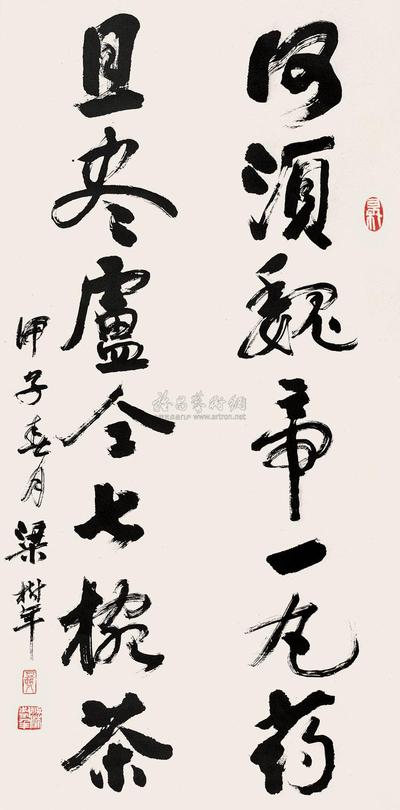 何須魏帝一丸药
且尽盧仝七椀茶
甲子春月梁樹年
www.artron.net